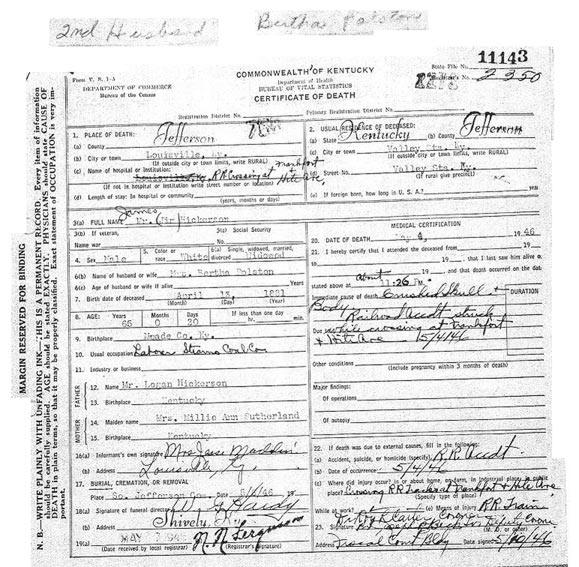 2nd Husband Bertha Polston
11143
State File No.
2350
Form V. S. 1-A
DEPARTMENT OF COMMERCE
Bureau of the Census
COMMONWEALTH OF KENTUCKY
Department of Health
BUREAU OF VITAL STATISTICS
CERTIFICATE OF DEATH
Registration District No. Primary Registration District No.
MARGIN RESERVED FOR BINDING
N. B.—WRITE PLAINLY WITH UNFADING INK—THIS IS A PERMANENT RECORD. Every item of information
should be carefully supplied. AGE should be stated EXACTLY. PHYSICIANS should state CAUSE OF
DEATH in plain terms, so that it may be properly classified. Exact statement of OCCUPATION is very im-
portant.
1. PLACE OF DEATH:
(a) County Jefferson
(b) City or town Louisville, Ky.
(If outside city or town limits, write RURAL)
(c) Name of hospital or institution: R R Crossing at Frankfort + Hite Ave.
(If not in hospital or institution write street number or location)
(d) Length of stay: In hospital or community
(years, months or days)
2. USUAL RESIDENCE OF DECEASED:
(a) State Kentucky (b) County Jefferson
(c) City or town Valley Sta. Ky.
(If outside city or town limits, write RURAL)
(d) Street No. Valley Sta. Ky.
(If rural give precinct)
(e) If foreign born, how long in U. S. A.?
James
3(a) FULL NAME Mr. Hickerson
3(b) If veteran, 3(c) Social Security
Name war No.
4. Sex Male 5. Color or race White 6(a) Single, widowed, married, divorced Widowed
6(b) Name of husband or wife Mrs. Bertha Polston
6(c) Age of husband or wife if alive Years
7. Birth date of deceased April 13, 1881
(Month) (Day) (Year)
8. AGE: Years Months Days If less than one day
65 0 20 hr. min.
9. Birthplace Meade Co. Ky.
10. Usual occupation Laborer Stearns Coal Co
11. Industry or business
FATHER
12. Name Mr. Logan Hickerson
13. Birthplace Kentucky
MOTHER
14. Maiden name Mrs. Millie Ann Sutherland
15. Birthplace Kentucky
16(a) Informant's own signature
(b) Address Louisville, Ky
17. BURIAL, CREMATION, OR REMOVAL
Place So. Jefferson Co. Date 46
18(a) Signature of funeral director
(b) Address Shively, Ky
19(a) MAY
(Date received by local registrar) (Registrar's signature)
MEDICAL CERTIFICATION
20. DATE OF DEATH 1946
21. I hereby certify that I attended the deceased from 19
19 , that I last saw him alive
19 , and that death occurred on the date
stated above at about 11:26 P.m.
Immediate cause of death Crushed Skull + DURATION
Body
Railroad Accdt struck
Due while crossing at Frankfort
+ Hite Ave 5/4/46
Other conditions
(Include pregnancy within 3 months of death)
Major findings:
Of operations
Of autopsy
22. If death was due to external causes, fill in the following:
(a) Accident, suicide, or homicide (specify) R.R. Accdt.
(b) Date of occurrence 5/4/46
(c) Where did injury occur? in or about home, on farm, in industrial place, in public place?
Crossing RR Tracks at Frankfort + Hite Ave
(Specify type of place)
While at work? (e) Means of injury R.R. Train
Coroner
23. Signature Deputy Coroner
Address Fiscal Court Bldg Date signed 5/20/46